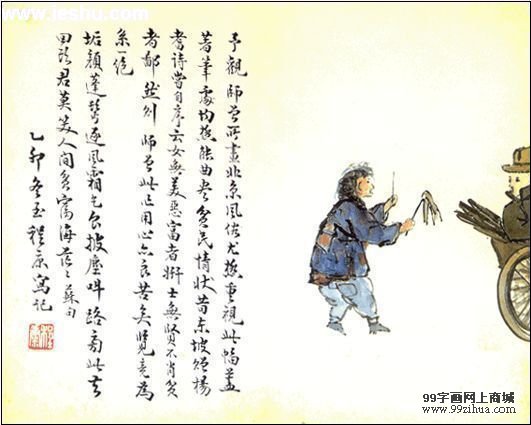 www.jeshu.com
予觀師曾所畫北京風俗尤極重視此幅蓋
著筆處均極能曲盡貧民情狀昔東坡贈楊
耆詩嘗自序云女無美惡富者妍士無賢不肖貧
者鄙然則師曾此作用心亦良苦矣覽竟為
系一絕
垢顏蓬鬢逐風霜乞食披塵叫路旁此去
回頭君莫笑人間貧富海茫々
乙卯冬至程康寫記
99字画网上商城
www.99zihua.com